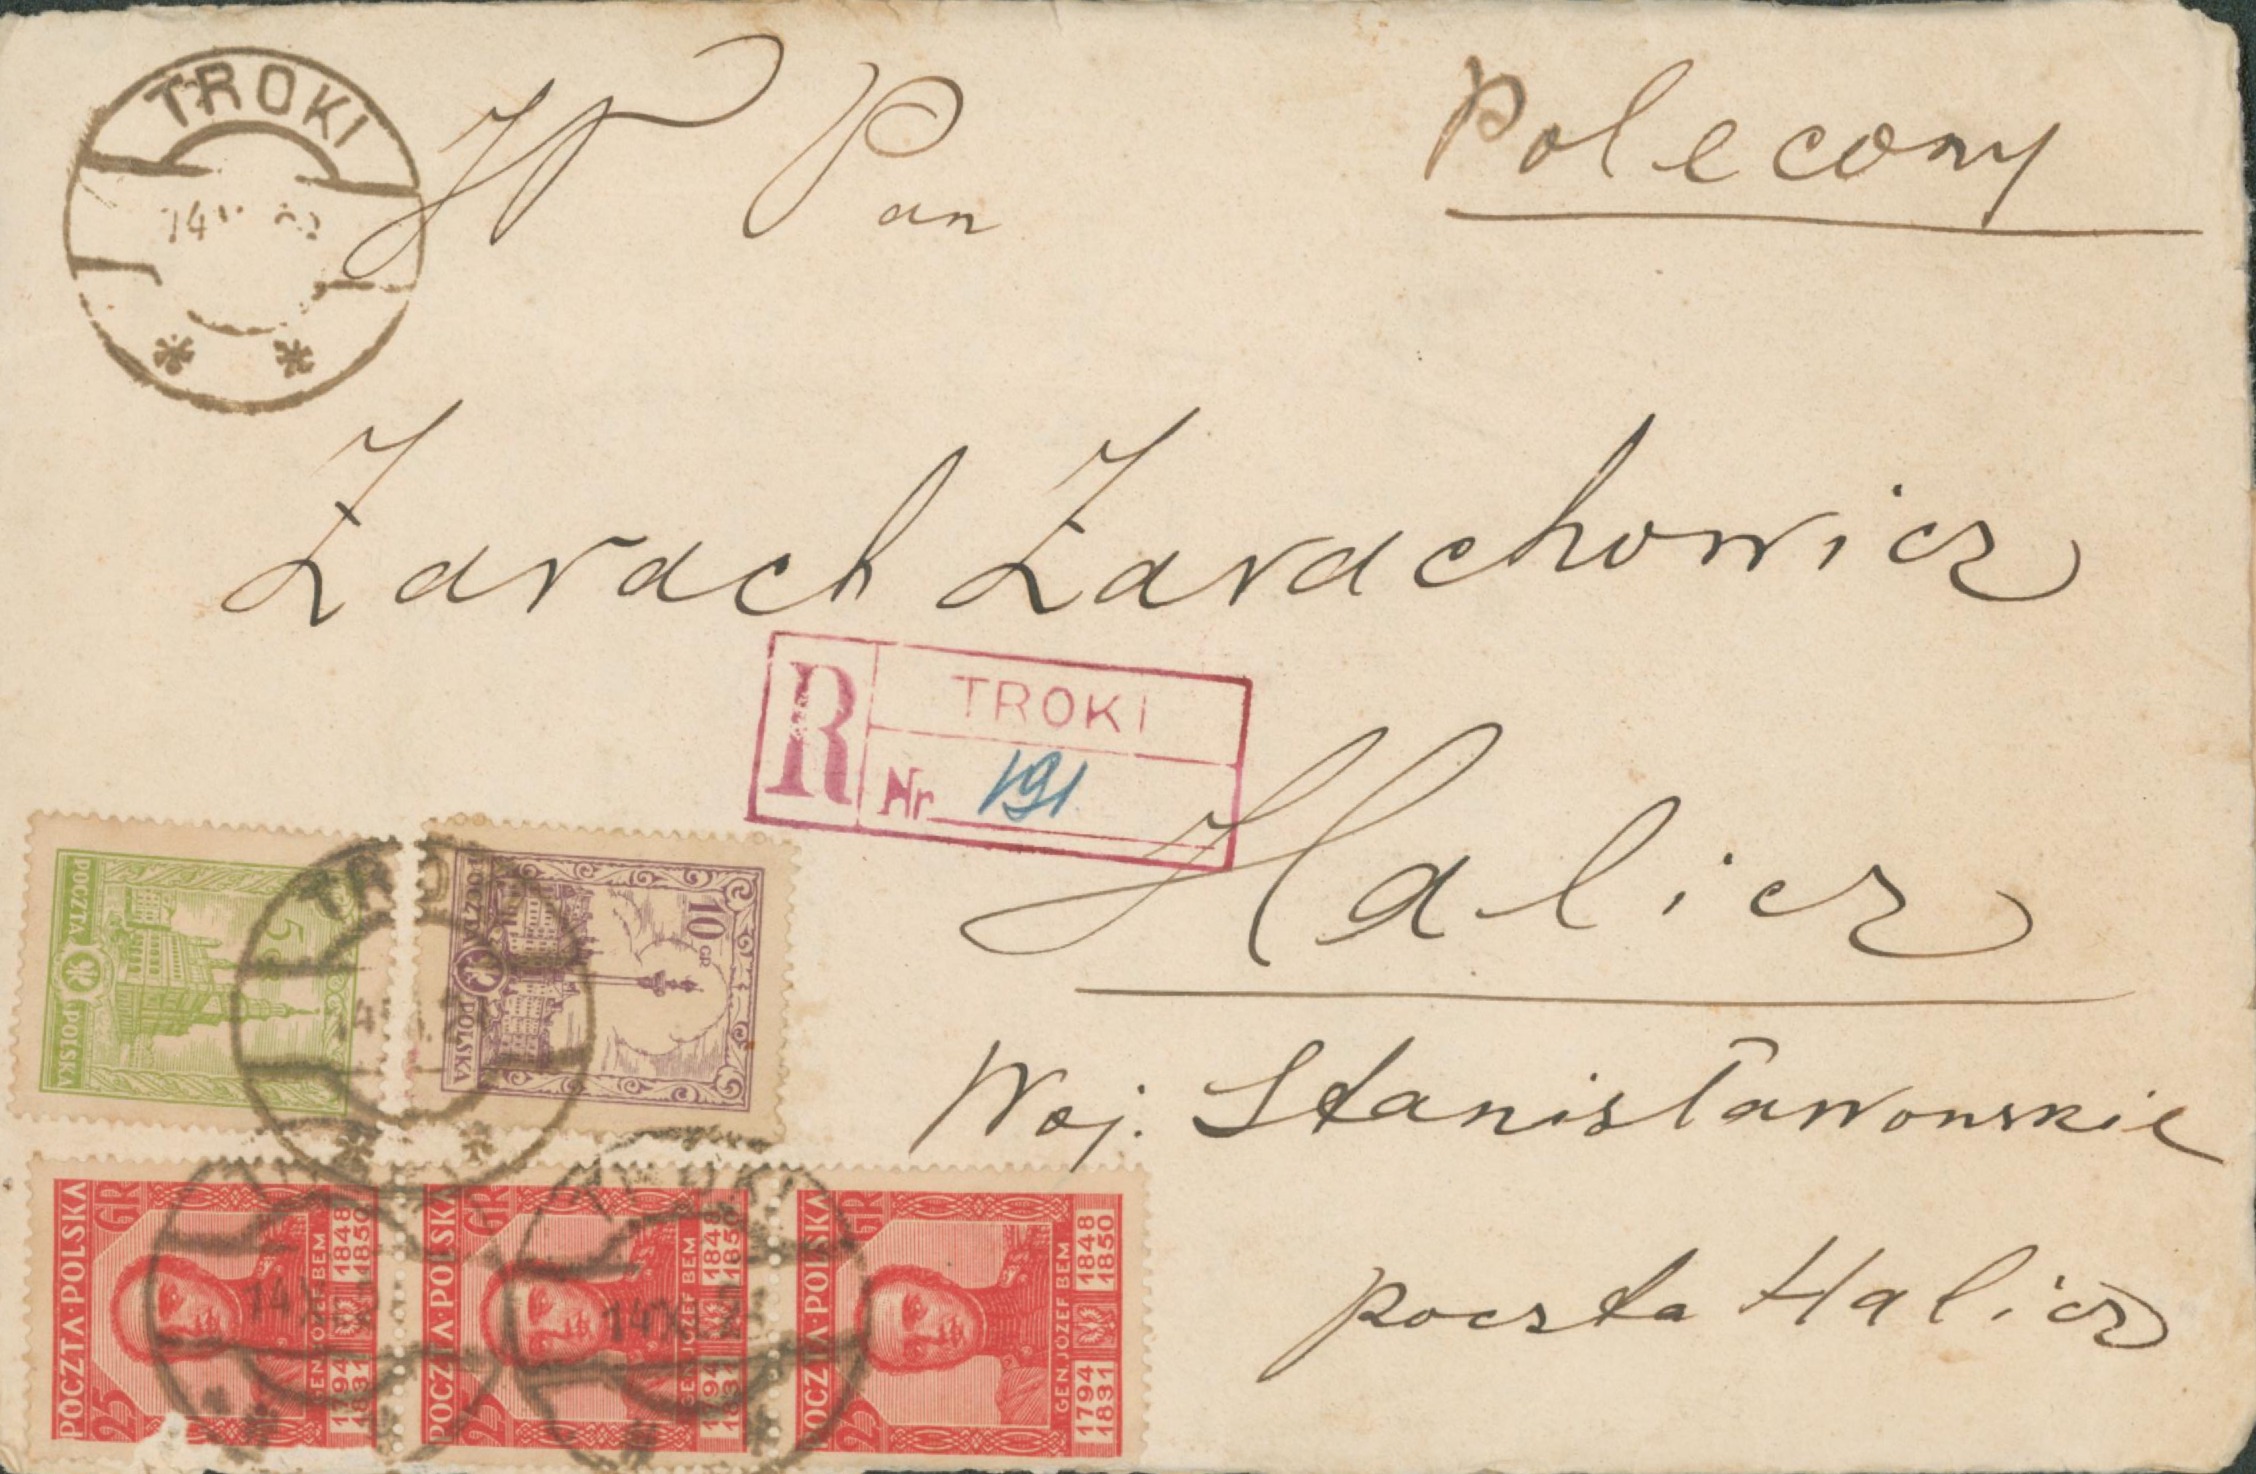 TROKI
14
JW Pan
Polecony
Zarach Zarachowicz
R TROKI
Nr 191
Halicz
Woj. Stanisławowskie
poczta Halicz
5
POCZTA POLSKA
10 GR
POCZTA POLSKA
TROKI
POCZTA·POLSKA
25 GR
GEN JÓZEF BEM
1794 1848
1831 1850
14 X
POCZTA·POLSKA
25 GR
GEN JÓZEF BEM
1794 1848
1831 1850
TROKI
14 X
POCZTA·POLSKA
25 GR
GEN JÓZEF BEM
1794 1848
1831 1850